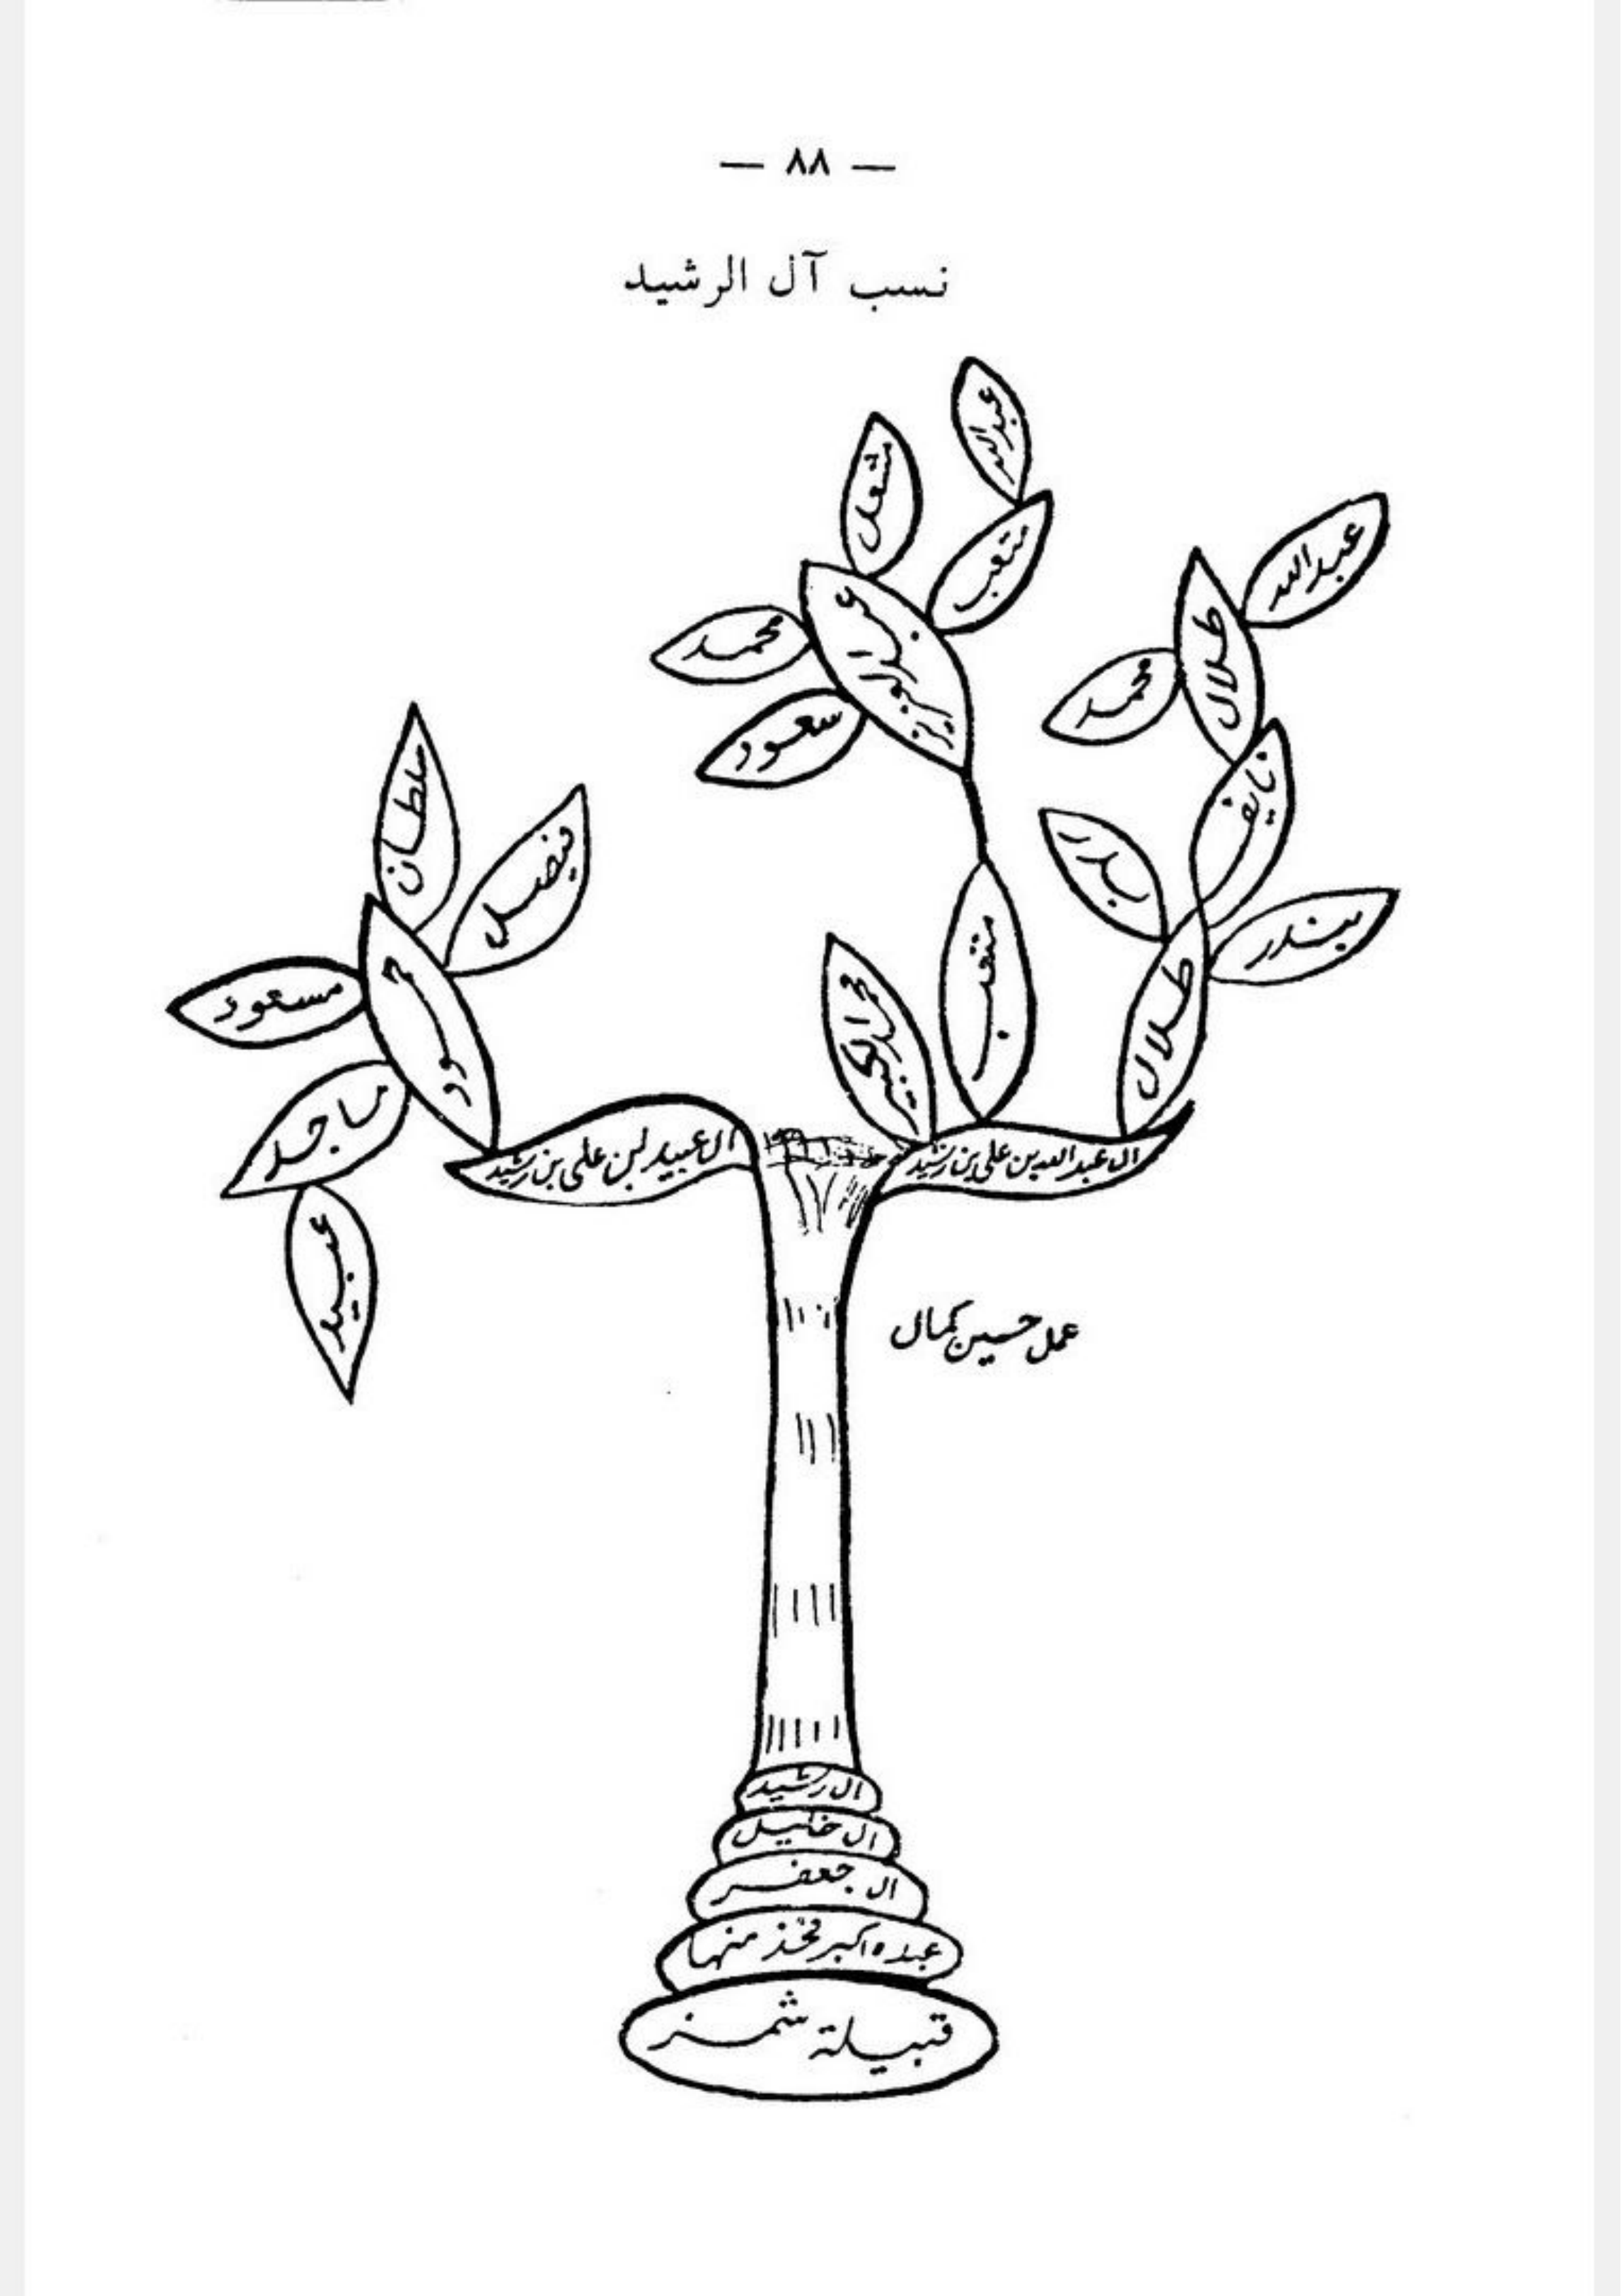 — ٨٨ —
نسب آل الرشيد
عبدالله
مشعل
متعب
عبدالعزيز
محمد
سعود
عبدالله
طلال
محمد
نايف
بدر
بندر
طلال
متعب
محمد الكبير
سلطان
فيصل
حمود
مسعود
ماجد
عبيد
ال عبدالله بن علي بن رشيد
ال عبيد بن علي بن رشيد
عمل حسين كمال
ال رشيد
ال خليل
ال جعفر
عبده اكبر فخذ منها
قبيلة شمر